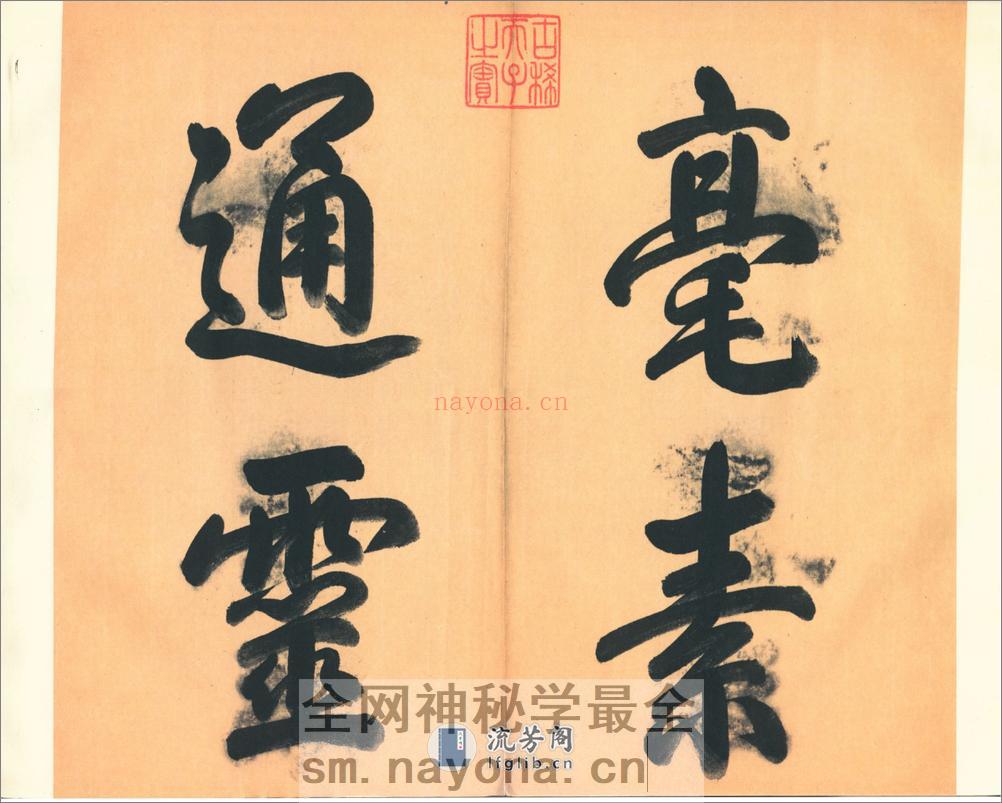 毫素
通靈
古稀
天子
之寶
nayona.cn
全网神秘学最全
流芳阁
lfglib.cn
sm.nayona.cn